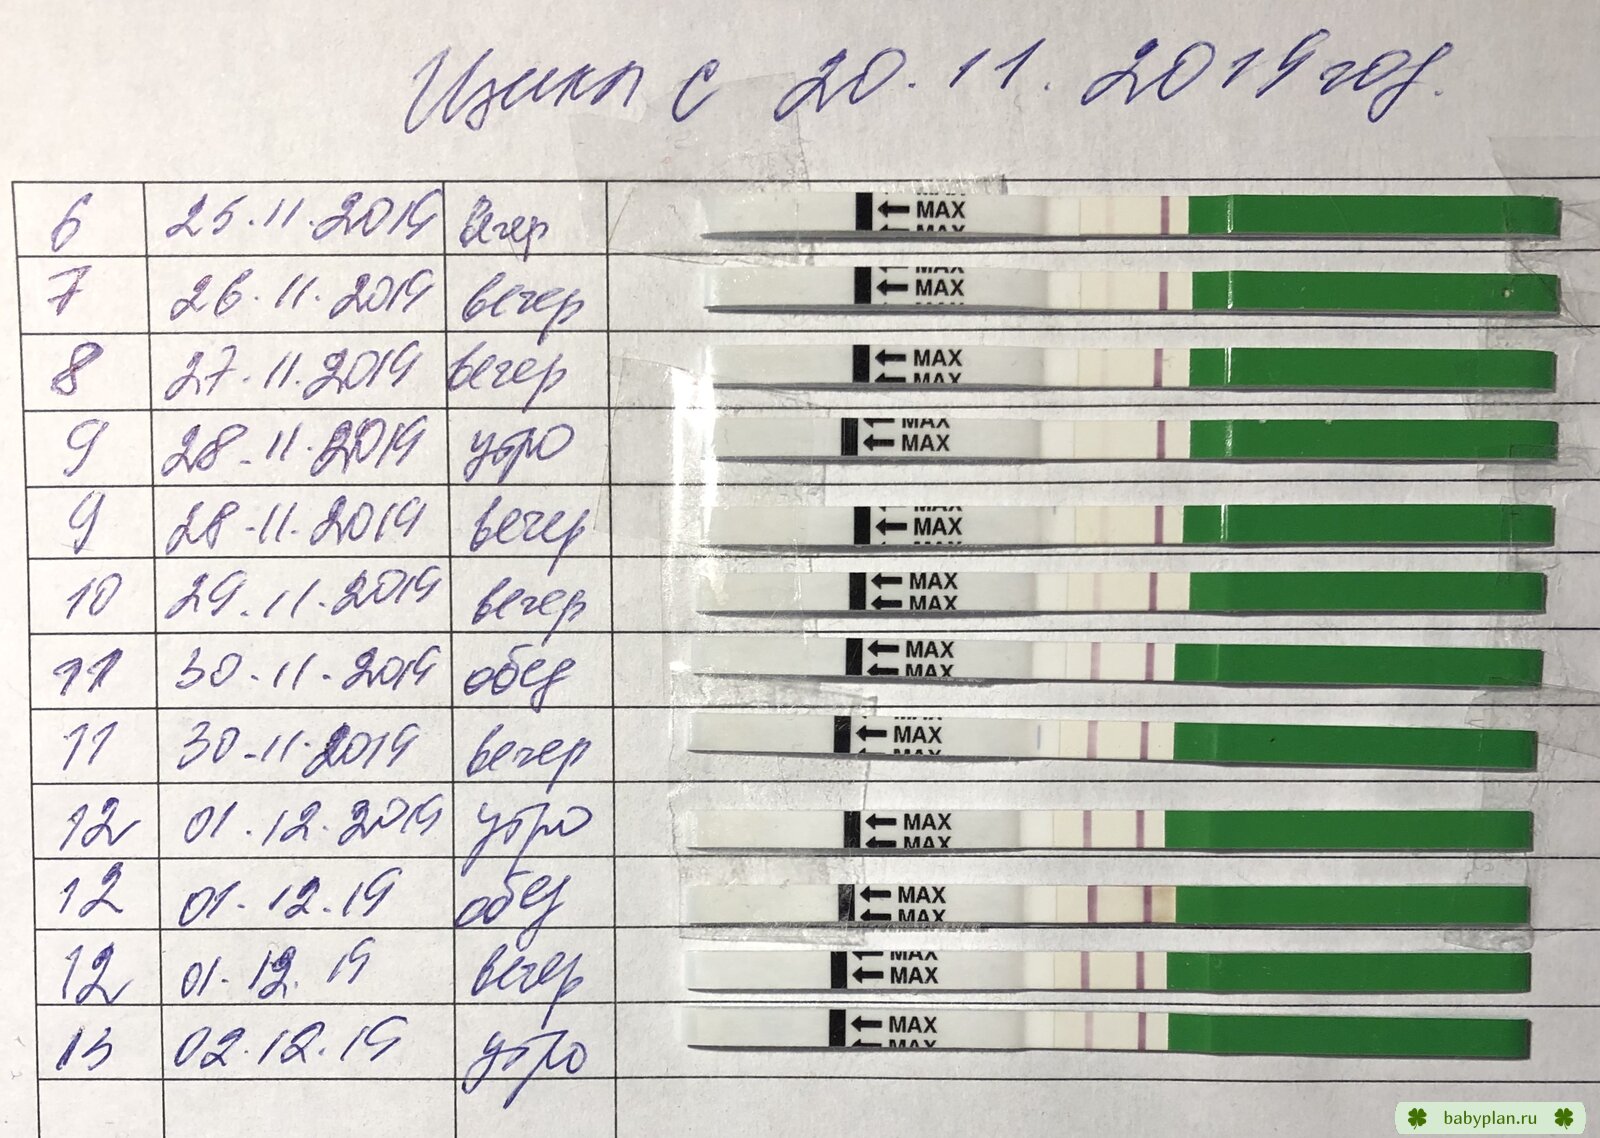 Цикл с 20.11.2019 год.
6 25.11.2019 вечер MAX MAX
7 26.11.2019 вечер MAX MAX
8 27.11.2019 вечер MAX MAX
9 28.11.2019 утро MAX MAX
9 28.11.2019 вечер MAX MAX MAX
10 29.11.2019 вечер MAX MAX
11 30.11.2019 обед MAX MAX
11 30.11.2019 вечер MAX MAX MAX
12 01.12.2019 утро MAX MAX
12 01.12.19 обед MAX MAX
12 01.12.19 вечер MAX MAX
13 02.12.19 утро MAX MAX
babyplan.ru